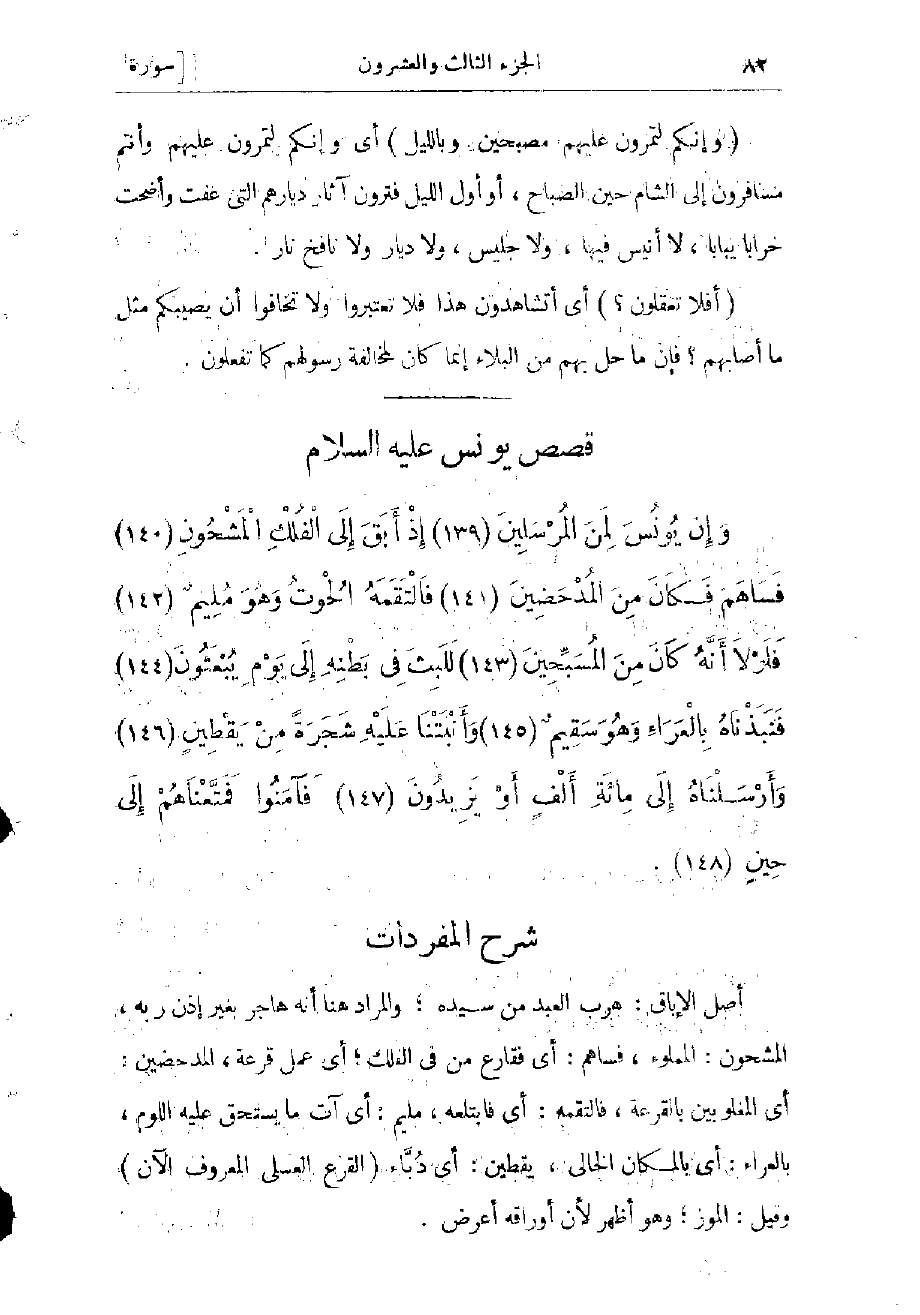 ٨٢ الجزء الثالث والعشرون [ سورة
( وإنكم لتمرون عليهم مصبحين. وبالليل ) أى وإنكم لتمرون عليهم وأنتم
مسافرون إلى الشام حين الصباح ، أو أول الليل فترون آثار ديارهم التى عفت وأضحت
خرابا يبابا ، لا أنيس فيها ، ولا جليس ، ولا ديار ولا نافخ نار .
( أفلا تعقلون ؟ ) أى أتشاهدون هذا فلا تعتبروا ولا تخافوا أن يصيبكم مثل
ما أصابهم ؟ فإن ما حل بهم من البلاء إنما كان لمخالفة رسولهم كما تفعلون .
قصص يونس عليه السلام
وَإِن يُونُسَ لَمِنَ الْمُرْسَلِينَ (١٣٩) إِذْ أَبَقَ إِلَى الْفُلْكِ الْمَشْحُونِ (١٤٠)
فَسَاهَمَ فَكَانَ مِنَ الْمُدْحَضِينَ (١٤١) فَالْتَقَمَهُ الْحُوتُ وَهُوَ مُلِيمٌ (١٤٢)
فَلَوْلاَ أَنَّهُ كَانَ مِنَ الْمُسَبِّحِينَ (١٤٣) لَلَبِثَ فِى بَطْنِهِ إِلَى يَوْمِ يُبْعَثُونَ (١٤٤)
فَنَبَذْنَاهُ بِالْعَرَاءِ وَهُوَ سَقِيمٌ (١٤٥) وَأَنْبَتْنَا عَلَيْهِ شَجَرَةً مِنْ يَقْطِينٍ (١٤٦)
وَأَرْسَلْنَاهُ إِلَى مِائَةِ أَلْفٍ أَوْ يَزِيدُونَ (١٤٧) فَآمَنُوا فَمَتَّعْنَاهُمْ إِلَى
حِينٍ (١٤٨) .
شرح المفردات
أصل الإباق : هرب العبد من سيده ؛ والمراد هنا أنه هاجر بغير إذن ربه ،
المشحون : المملوء ، فساهم : أى فقارع من فى الفلك ؛ أى عمل قرعة ، المدحضين :
أى المغلوبين بالقرعة ، فالتقمه : أى فابتلعه ، مليم : أى آت ما يستحق عليه اللوم ،
بالعراء : أى بالمكان الخالى ، يقطين : أى دُبَّاء ( القرع العسلى المعروف الآن )
وقيل : الموز ؛ وهو أظهر لأن أوراقه أعرض .